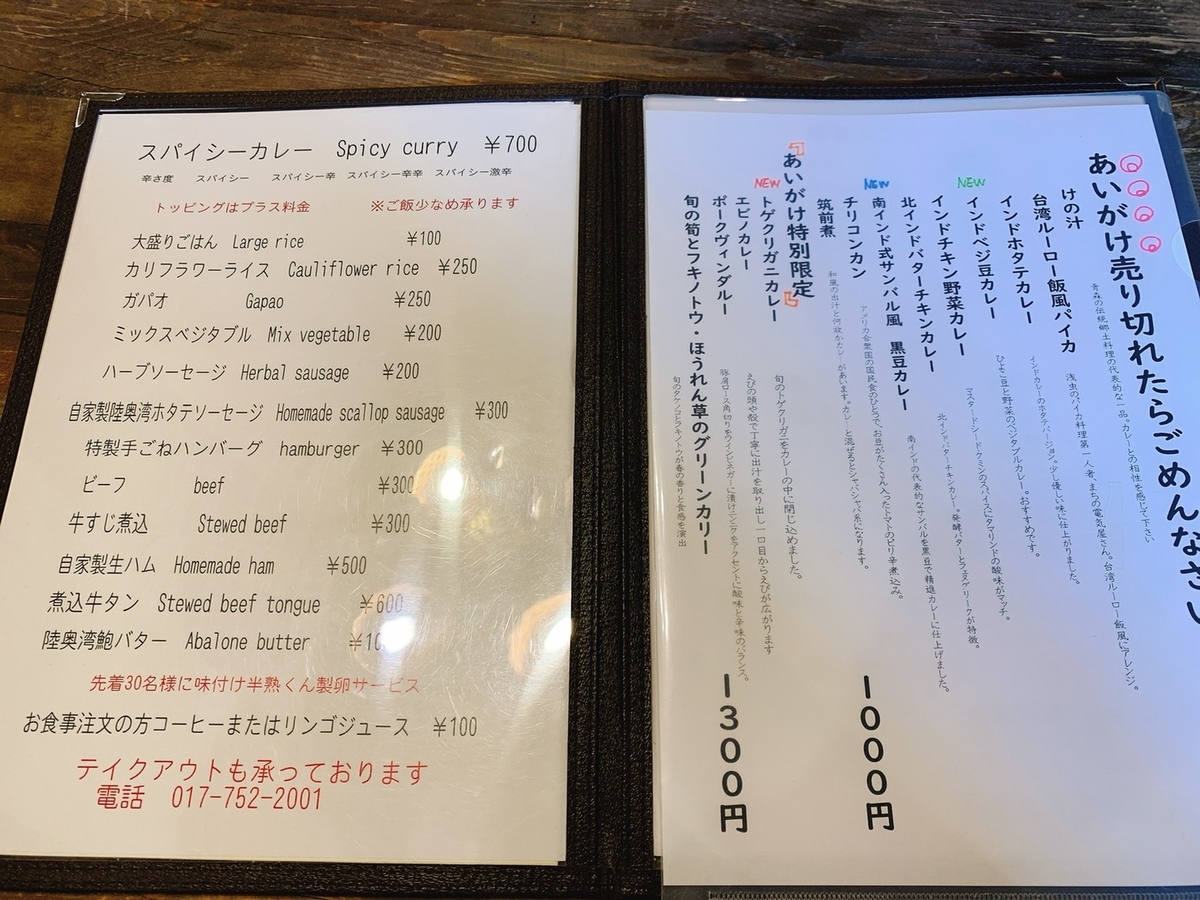 スパイシーカレー Spicy curry ￥700
辛さ度 スパイシー スパイシー辛 スパイシー辛辛 スパイシー激辛
トッピングはプラス料金 ※ご飯少なめ承ります
大盛りごはん Large rice ￥100
カリフラワーライス Cauliflower rice ￥250
ガパオ Gapao ￥250
ミックスベジタブル Mix vegetable ￥200
ハーブソーセージ Herbal sausage ￥200
自家製陸奥湾ホタテソーセージ Homemade scallop sausage ￥300
特製手ごねハンバーグ hamburger ￥300
ビーフ beef ￥300
牛すじ煮込 Stewed beef ￥300
自家製生ハム Homemade ham ￥500
煮込牛タン Stewed beef tongue ￥600
陸奥湾鮑バター Abalone butter
先着30名様に味付け半熟くん製卵サービス
お食事注文の方コーヒーまたはリンゴジュース ￥100
テイクアウトも承っております
電話 017-752-2001
あいがけ売り切れたらごめんなさい
けの汁
青森の伝統郷土料理の代表的な一品。カレーとの相性を感じて下さい
台湾ルーロー飯風パイカ
浅虫のパイカ料理第一人者、まちの電気屋さん。台湾ルーロー飯風にアレンジ。
インドホタテカレー
インドカレーのホタテバージョン。少し優しい味に仕上がりました。
NEW
インドベジ豆カレー
ひよこ豆と野菜のベジタブルカレー。おすすめです。
インドチキン野菜カレー
マスタードシード・クミンのスパイスにタマリンドの酸味がマッチ。
北インドバターチキンカレー
北インドバターチキンカレー。発酵バターとフェヌグリークが特徴。
NEW
南インド式サンバル風 黒豆カレー
南インドの代表的なサンバルを黒豆で精進カレーに仕上げました。
チリコンカン
アメリカ合衆国の国民食のひとつで、お豆がたくさん入ったトマトのピリ辛煮込み。
筑前煮
和風の出汁と何故かカレーがあいます。カレーと混ぜるとシャバシャバ系になります。
1000円
『あいがけ特別限定』
NEW
トゲクリガニカレー
旬のトゲクリガニをカレーの中に閉じ込めました。
エビノカレー
えびの頭や殻で丁寧に出汁を取り出し一口目からえびが広がります
ポークヴィンダルー
豚肩ロース角切りをワインビネガーに漬けニンニクをアクセントに酸味と辛味のバランス。
旬の筍とフキノトウ・ほうれん草のグリーンカリー
旬のタケノコとフキノトウが春の香りと食感を演出
1300円